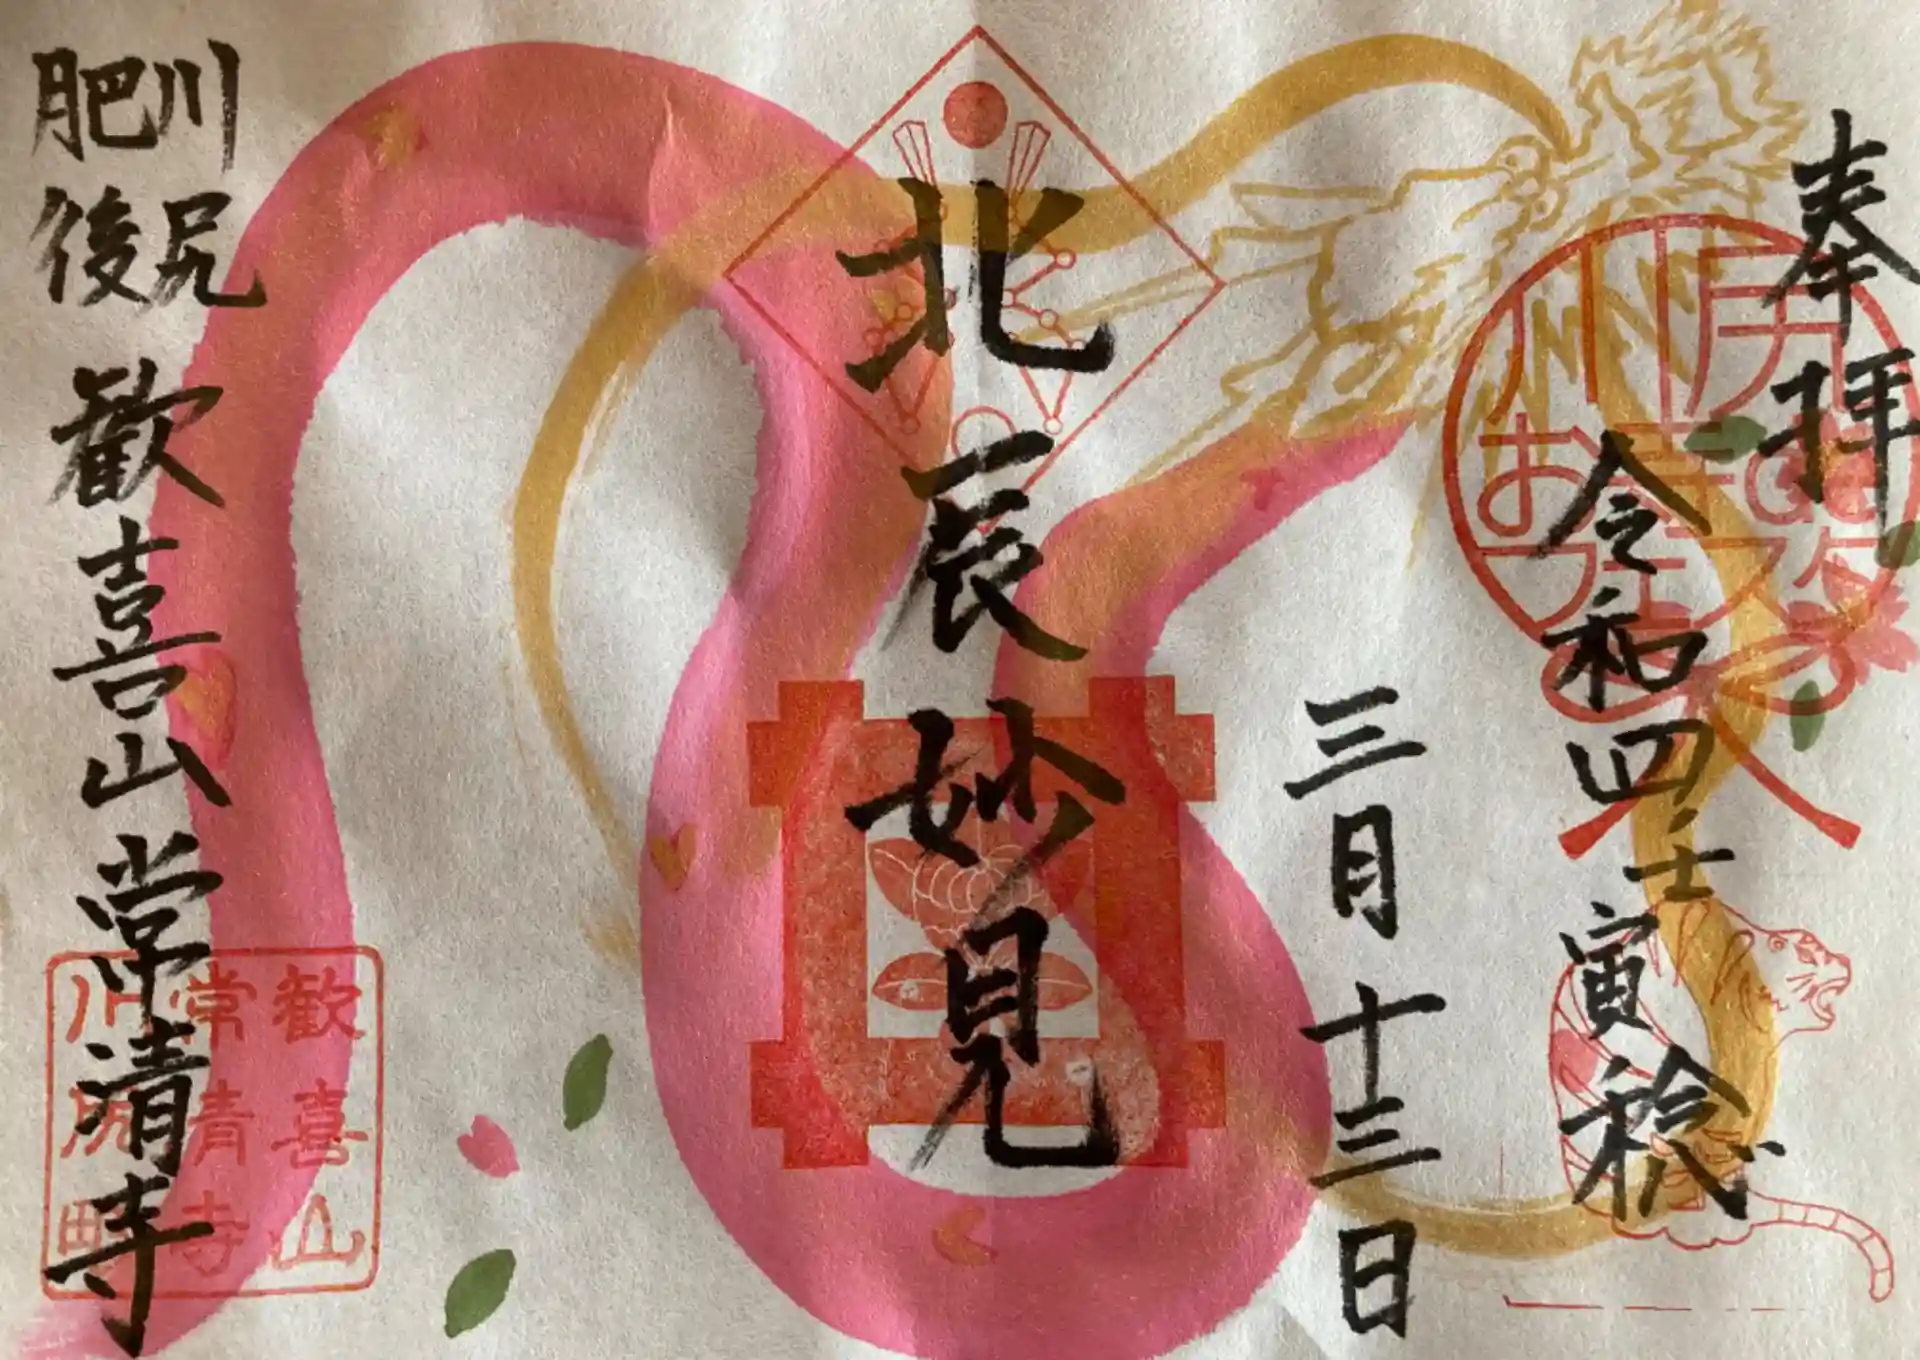 奉拝
令和四 壬寅 稔
三月十三日
北辰妙見
肥後
川尻
歓喜山常清寺
歓喜山
常清寺
川尻町